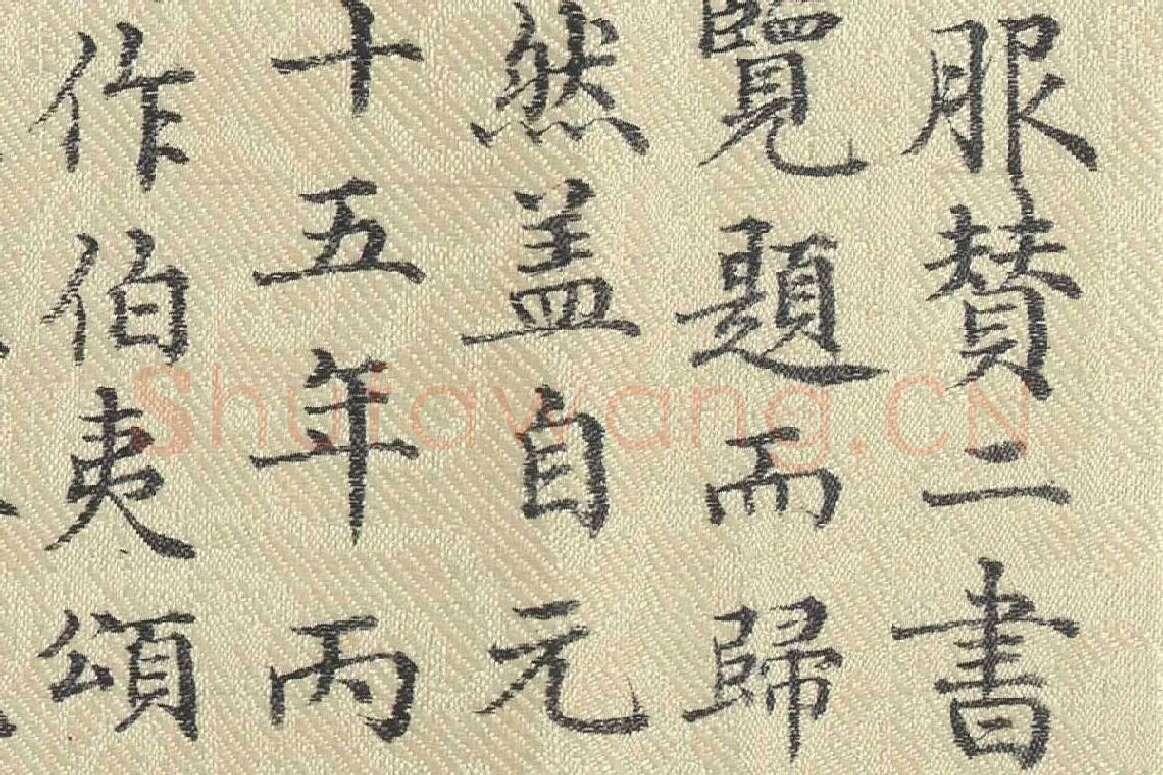 服賛二書
覽題而歸
然盖自元
十五年丙
作伯夷頌
Shufawang.CN